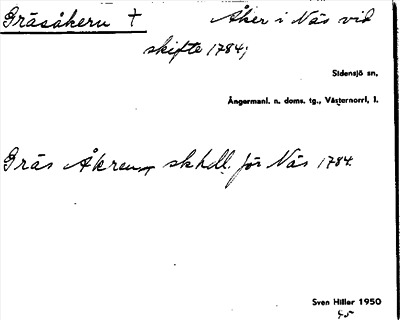 Gräsåkern † Åker i Näs vid
skifte 1784;
Sidensjö sn,
Ångermanl. n. doms. tg., Västernorrl. l.
Gräs Åkren skhdl. för Näs 1784.
Sven Hiller 1950
45